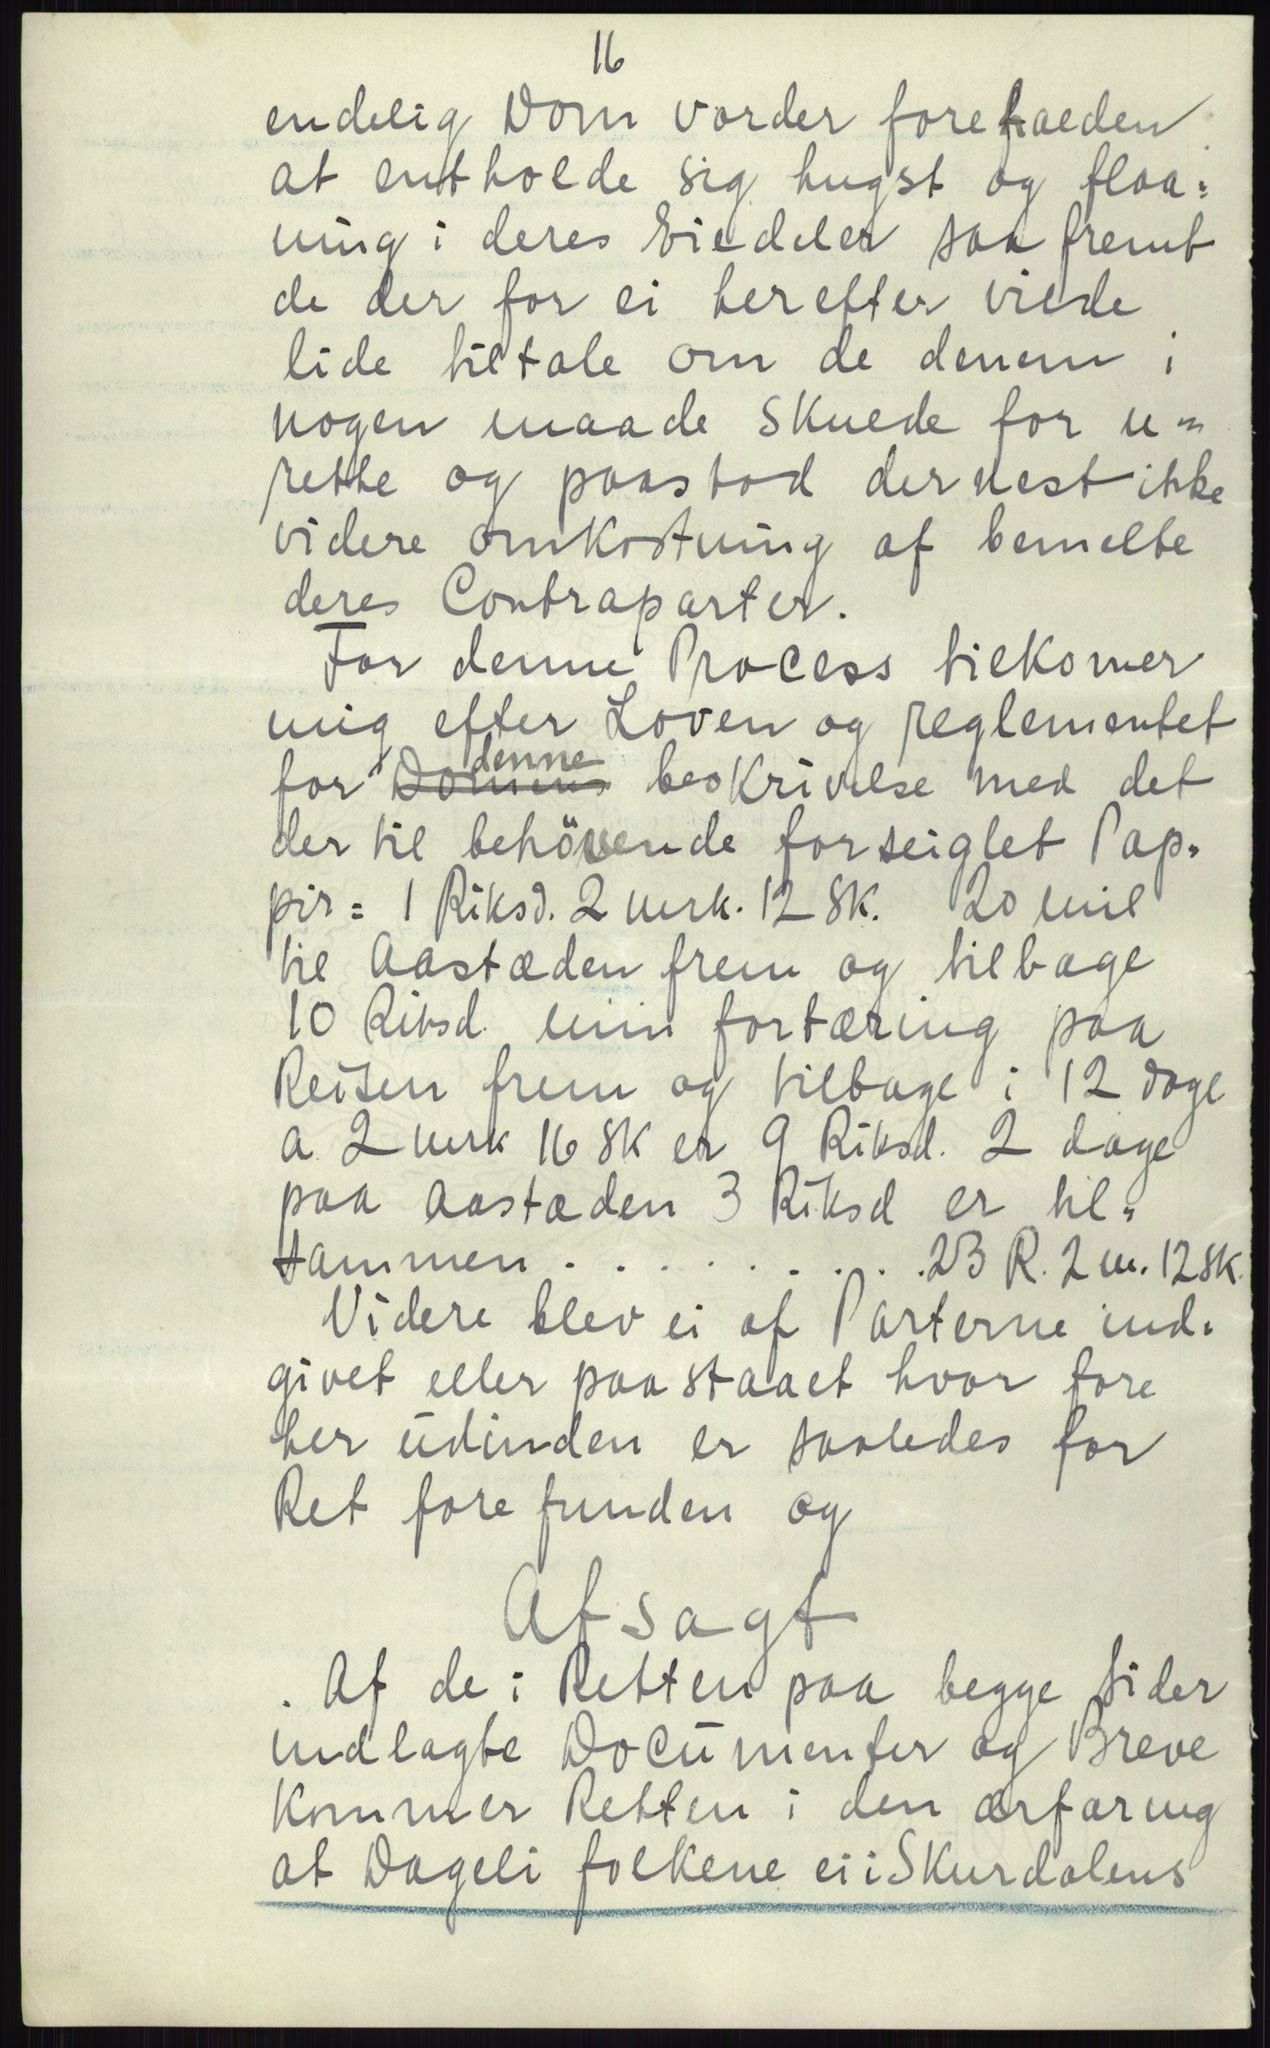 16
endelig Dom vorder foreholden
at entholde sig hugst og flaa=
ning i deres Eiedeler saa fremt
de der for ei herefter vilde
lide tiltale om de denem i
nogen maade skulde for u=
rette og paastod dernest ikke
videre omkostning af bemelte
deres Contraparter.
For denne Process tilkomer
mig efter Loven og reglementet
for Domens denne beskrivelse med det
der til behövende forseiglet Pap=
pir = 1 Riksd. 2 mrk. 12 sk. 20 mil
til Aastæden frem og tilbage
10 Riksd. min fortæring paa
Reisen frem og tilbage i 12 dage
a 2 mrk 16 sk er 9 Riksd. 2 dage
paa Aastæden 3 Riksd er til=
sammen . . . . . . . . . 23 R. 2 m. 12 sk.
Videre blev ei af Parterne ind=
givet eller paastaaet hvor fore
her udinden er saaledes for
Ret forefunden og
Afsagt
. Af de i Retten paa begge sider
indlagte Documenter og Breve
kommer Retten i den ærfaring
at Dageli folkene ei i Skurdalens